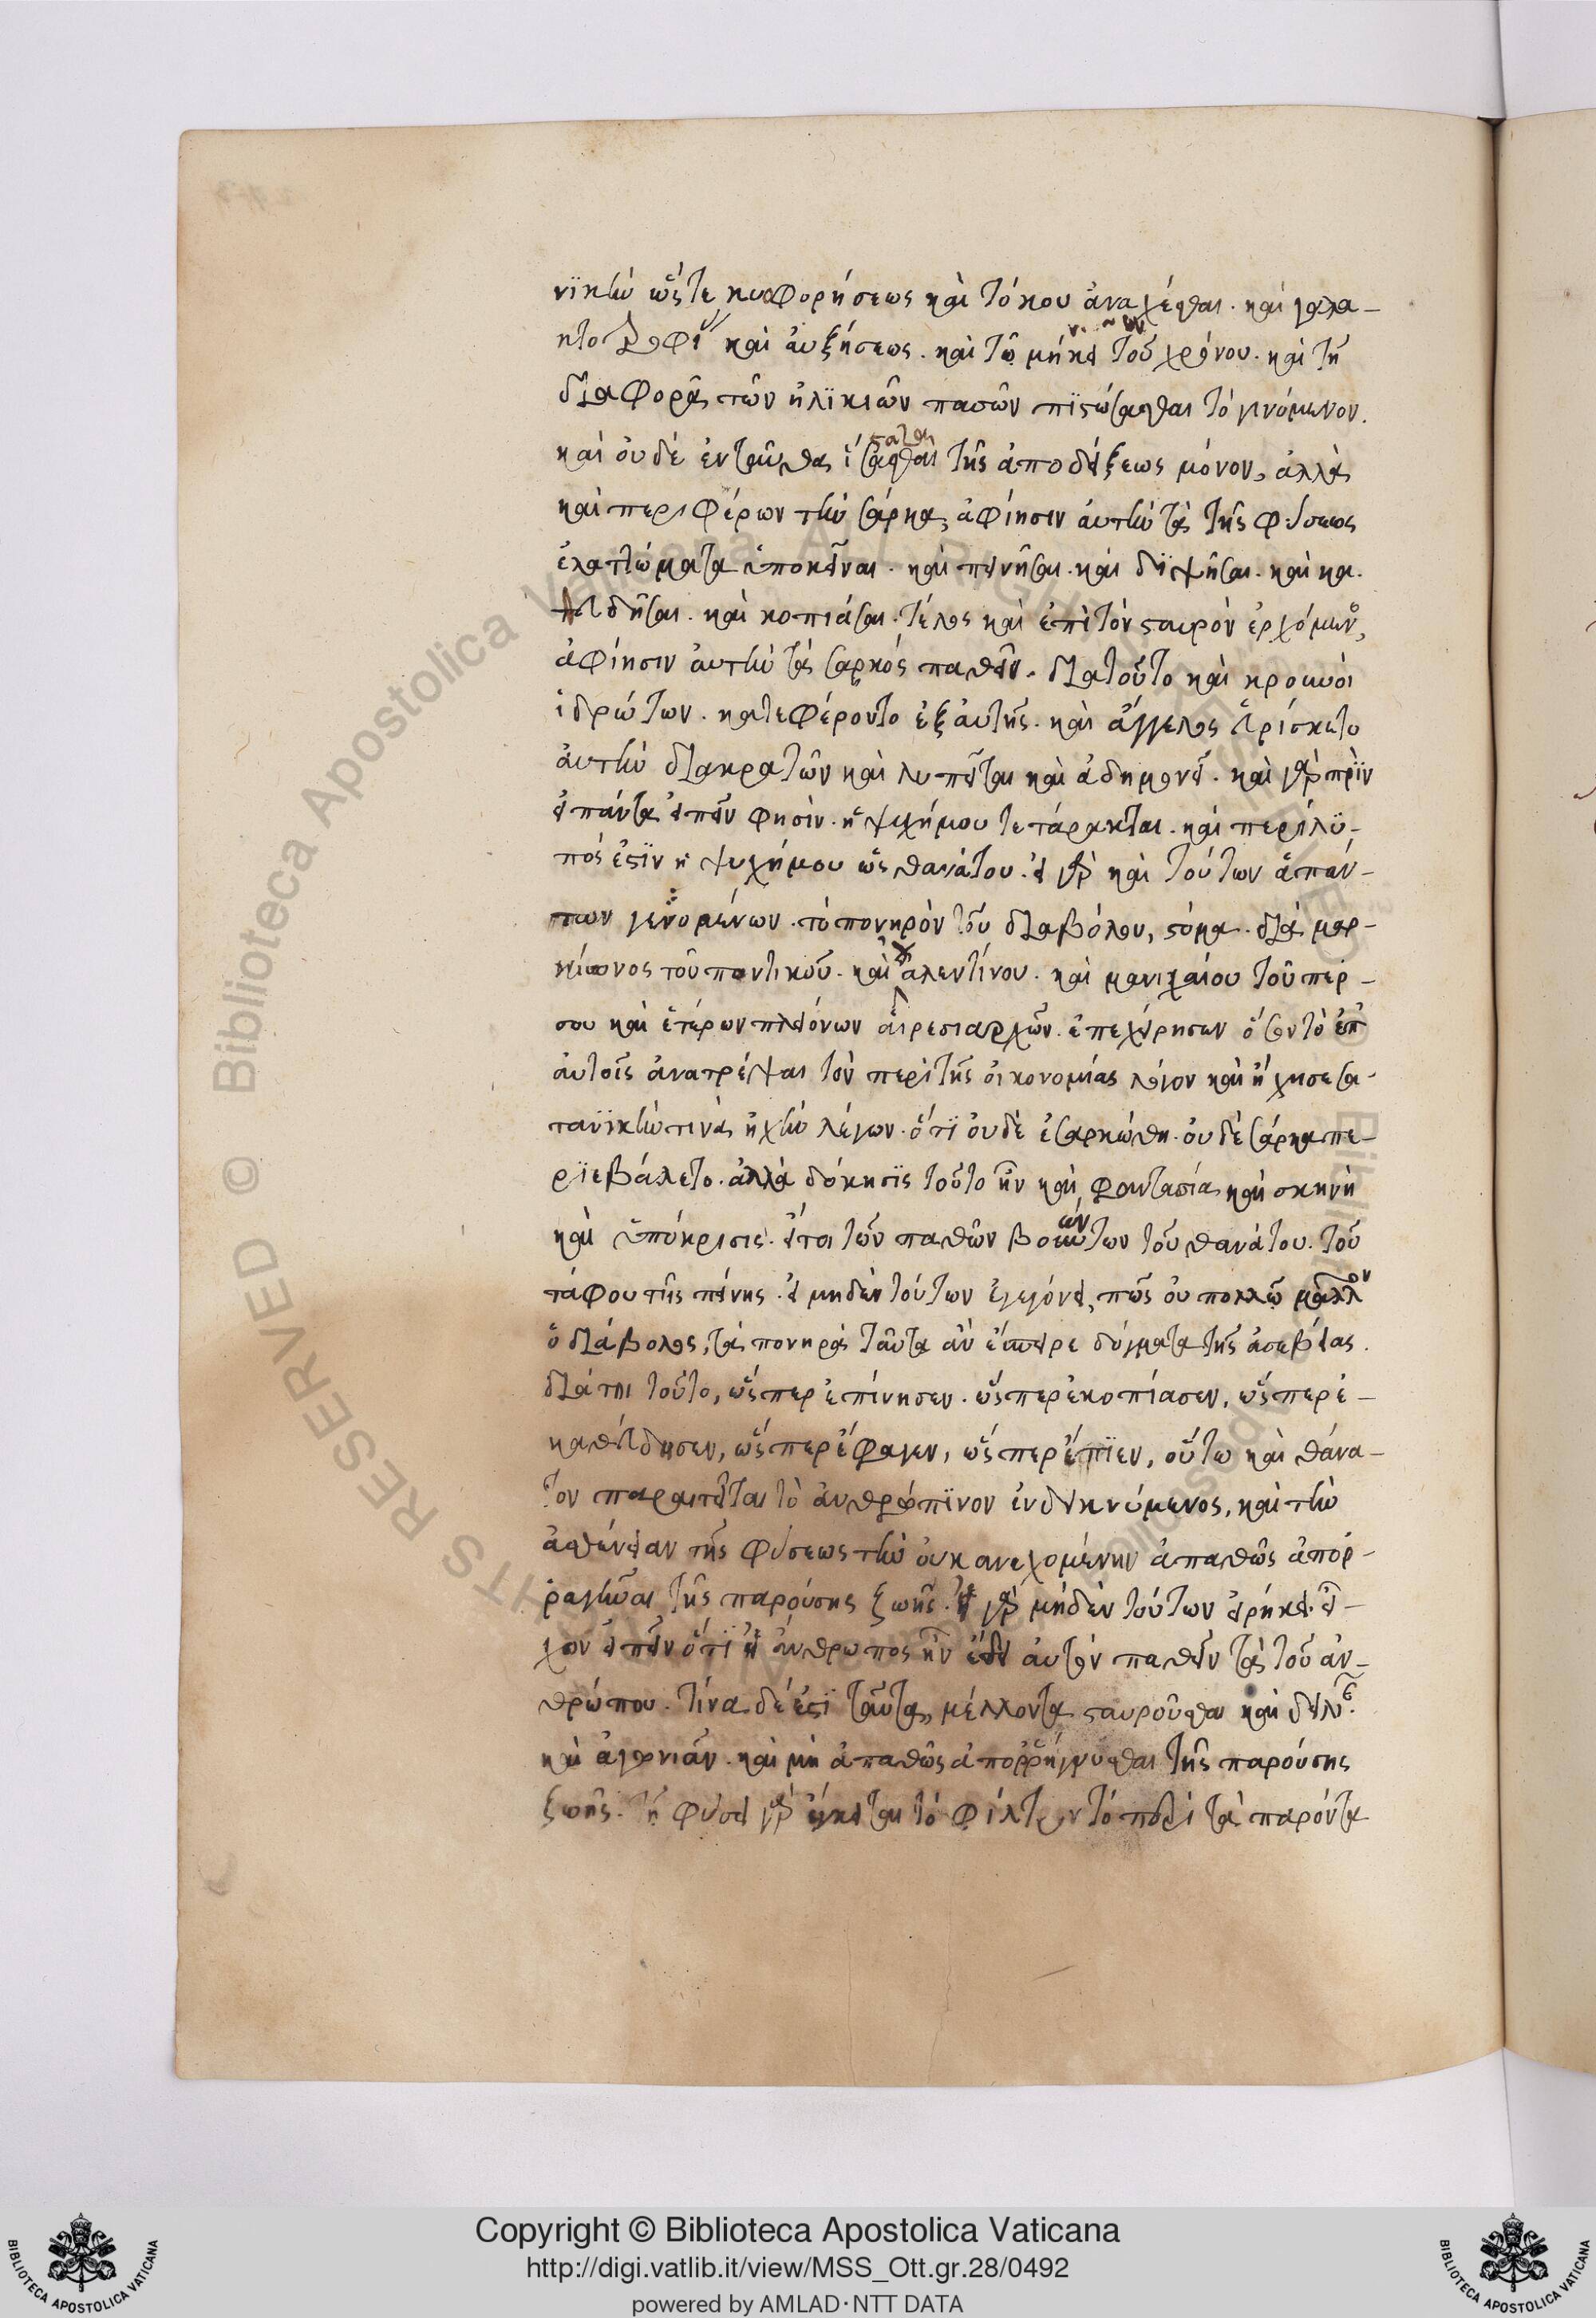 νϊκὴν ὥστε κυοφορήσεως καὶ τόκου ἀνασχέσθαι. καὶ γαλα-
κτοτροφί καὶ αὐξήσεως. καὶ τῶ μήκει τοῦ χρόνου. καὶ τῆ
διαφορᾶ τῶν ἡλϊκιῶν πασῶν πϊστώσασθαι τὸ γινόμενον.
καὶ οὐδὲ ἐνταῦθα ἵσταται τῆς ἀποδείξεως μόνον, ἀλλὰ
καὶ περιφέρων τὴν σάρκα, ἀφίησιν αὐτὴν τὰ τῆς φύσεως
ἐλαττώματα ὑπομεῖναι. καὶ πεινῆσαι. καὶ δϊψῆσαι. καὶ κα-
θευδῆσαι. καὶ κοπιάσαι. τέλος καὶ ἐπὶ τὸν σταυρὸν ἐρχόμενος,
ἀφίησιν αὐτὴν τὰ σαρκὸς παθεῖν. διατοῦτο καὶ κρουνοὶ
ἱδρώτων. κατεφέροντο ἐξ αὐτῆς. καὶ ἄγγελος εὑρίσκετο
αὐτὴν διακρατῶν καὶ λυπεῖται καὶ ἀδημονεῖ. καὶ γὰρ πρϊν
εἰπεῖν φησὶν. ἡ ψυχή μου τετάρακται. καὶ περίλϋ-
πός ἐστϊν ἡ ψυχή μου ἕως θανάτου. εἰ γὰρ καὶ τούτων ἁπάν-
των γενομένων. τὸ πονηρὸν τοῦ διαβόλου, στόμα. διὰ μαρ-
κίωνος τοῦ ποντικοῦ. καὶ βαλεντίνου. καὶ μανιχαίου τοῦ πέρ-
σου καὶ ἑτέρων πλειόνων αἱρεσιαρχῶν. ἐπεχείρησεν ὅσον τὸ ἐπ
αὐτοῖς ἀνατρέψαι τὸν περὶ τῆς οἰκονομίας λόγον καὶ ἤχησε σα-
τανϊκήν τινα ἠχὴν λέγων. ὅτϊ οὐδὲ ἐσαρκώθη. οὐδὲ σάρκα πε-
ρϊεβάλετο. ἀλλὰ δόκησϊς τοῦτο ἦν καὶ φαντασία καὶ σκηνὴ
καὶ ὑπόκρισις. καίτοι τῶν παθῶν βοώντων τοῦ θανάτου. τοῦ
τάφου τῆς πείνης. εἰ μηδὲν τούτων ἐγεγόνει, πῶς οὐ πολλῶ μᾶλλον
ὁ διάβολος, τὰ πονηρὰ ταῦτα ἂν ἔσπειρε δόγματα τῆς ἀσεβείας.
διάτοι τοῦτο, ὥσπερ ἐπείνησεν. ὥσπερ ἐκοπίασεν, ὥσπερ ἐ-
καθεύδησεν, ὥσπερ ἔφαγεν, ὥσπερ ἔπϊεν, οὕτω καὶ θάνα-
τον παραιτεῖται τὸ ἀνθρώπϊνον ἐνδεικνύμενος, καὶ τὴν
ἀσθένειαν τῆς φύσεως τὴν οὐκ ἀνεχομένην ἀπαθῶς ἀπορ-
ραγῆναι τῆς παρούσης ζωῆς. εἰ γὰρ μηδὲν τούτων εἰρήκει. εἶ-
χον εἰπεῖν ὅτϊ εἰ ἄνθρωπος ἦν ἔδει αὐτὸν παθεῖν τὰ τοῦ ἀν-
θρώπου. τίνα δέ ἐστϊ ταῦτα, μέλλοντα σταυροῦσθαι καὶ δειλιᾶν.
καὶ ἀγωνιᾶν. καὶ μὴ ἀπαθῶς ἀπορρήγνυσθαι τῆς παρούσης
ζωῆς. τῆ φύσει γὰρ ἔγκειται τὸ φίλτρον τὸ περὶ τὰ παρόντα
Copyright © Biblioteca Apostolica Vaticana
http://digi.vatlib.it/view/MSS_Ott.gr.28/0492
powered by AMLAD·NTT DATA